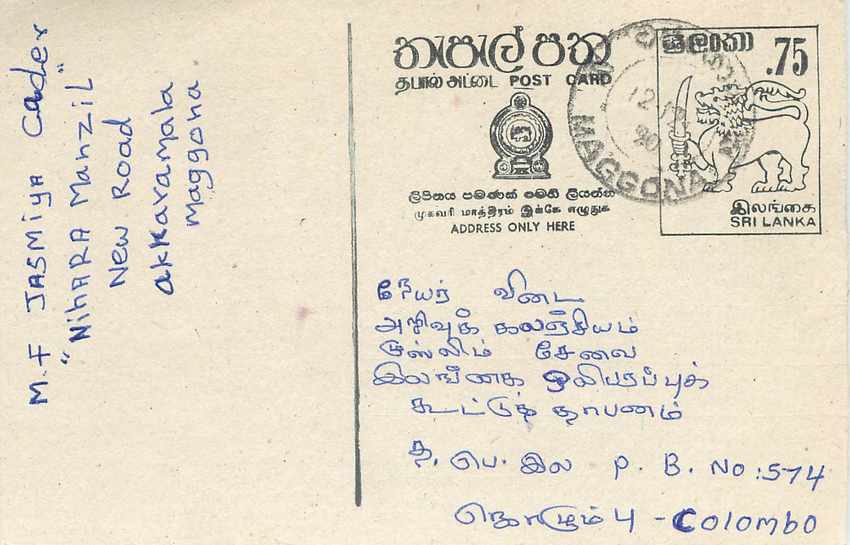 M.F JASMiyA Cader
"NihARA Manzil"
New Road
akkaramala
Maggona
තැපැල් පත
தபால் அட்டை POST CARD
ලිපිනය පමණක් මෙහි ලියන්න
முகவரி மாத்திரம் இங்கே எழுதுக
ADDRESS ONLY HERE
ශ්‍රී ලංකා
.75
இலங்கை
SRI LANKA
MAGGONA
நேயர் விடை
அறிவுக் களஞ்சியம்
முஸ்லிம் சேவை
இலங்கை ஒலிபரப்புக்
கூட்டுத் தாபனம்
த. பெ. இல P. B. No: 574
கொழும்பு - Colombo